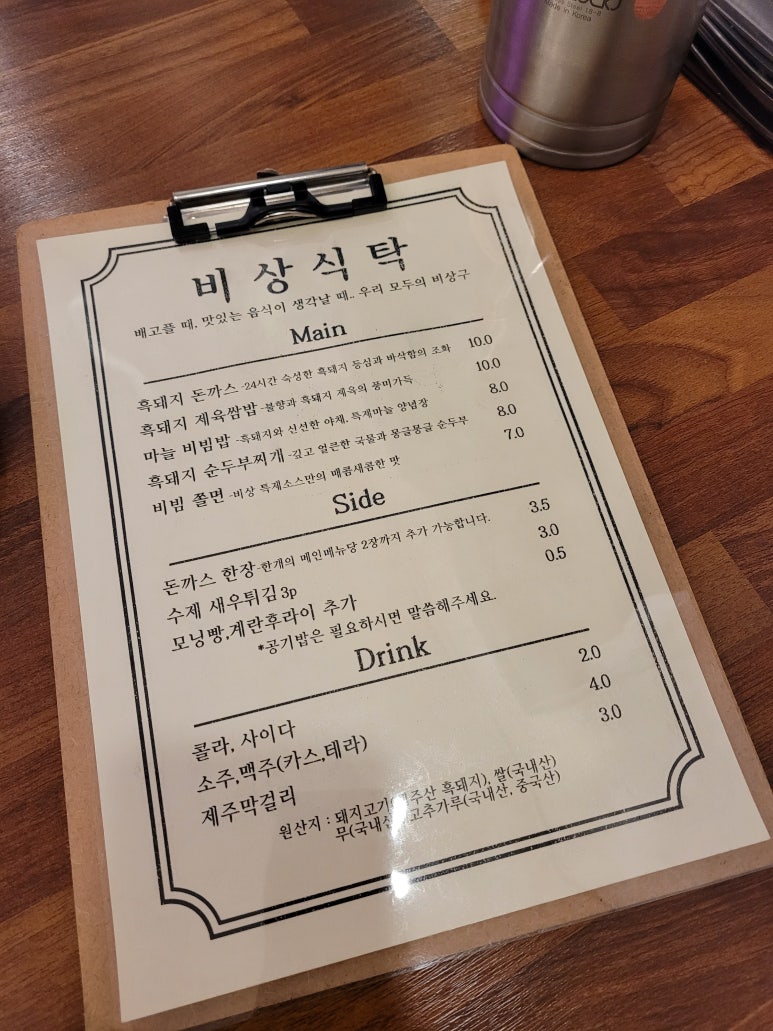 Steel 18-8
Made in Korea
비상식탁
배고플 때, 맛있는 음식이 생각날 때.. 우리 모두의 비상구
Main
흑돼지 돈까스 -24시간 숙성한 흑돼지 등심과 바삭함의 조화 10.0
흑돼지 제육쌈밥 -불향과 흑돼지 제육의 풍미가득 10.0
마늘 비빔밥 -흑돼지와 신선한 야채, 특제마늘 양념장 8.0
흑돼지 순두부찌개 -깊고 얼큰한 국물과 몽글몽글 순두부 8.0
비빔 쫄면 -비상 특제소스만의 매콤새콤한 맛 7.0
Side
돈까스 한장-한개의 메인메뉴당 2장까지 추가 가능합니다. 3.5
수제 새우튀김 3p 3.0
모닝빵,계란후라이 추가 0.5
*공기밥은 필요하시면 말씀해주세요.
Drink
콜라, 사이다 2.0
소주,맥주(카스,테라) 4.0
제주막걸리 3.0
원산지 : 돼지고기 흑돼지), 쌀(국내산)
무(국내산 고추가루(국내산, 중국산)